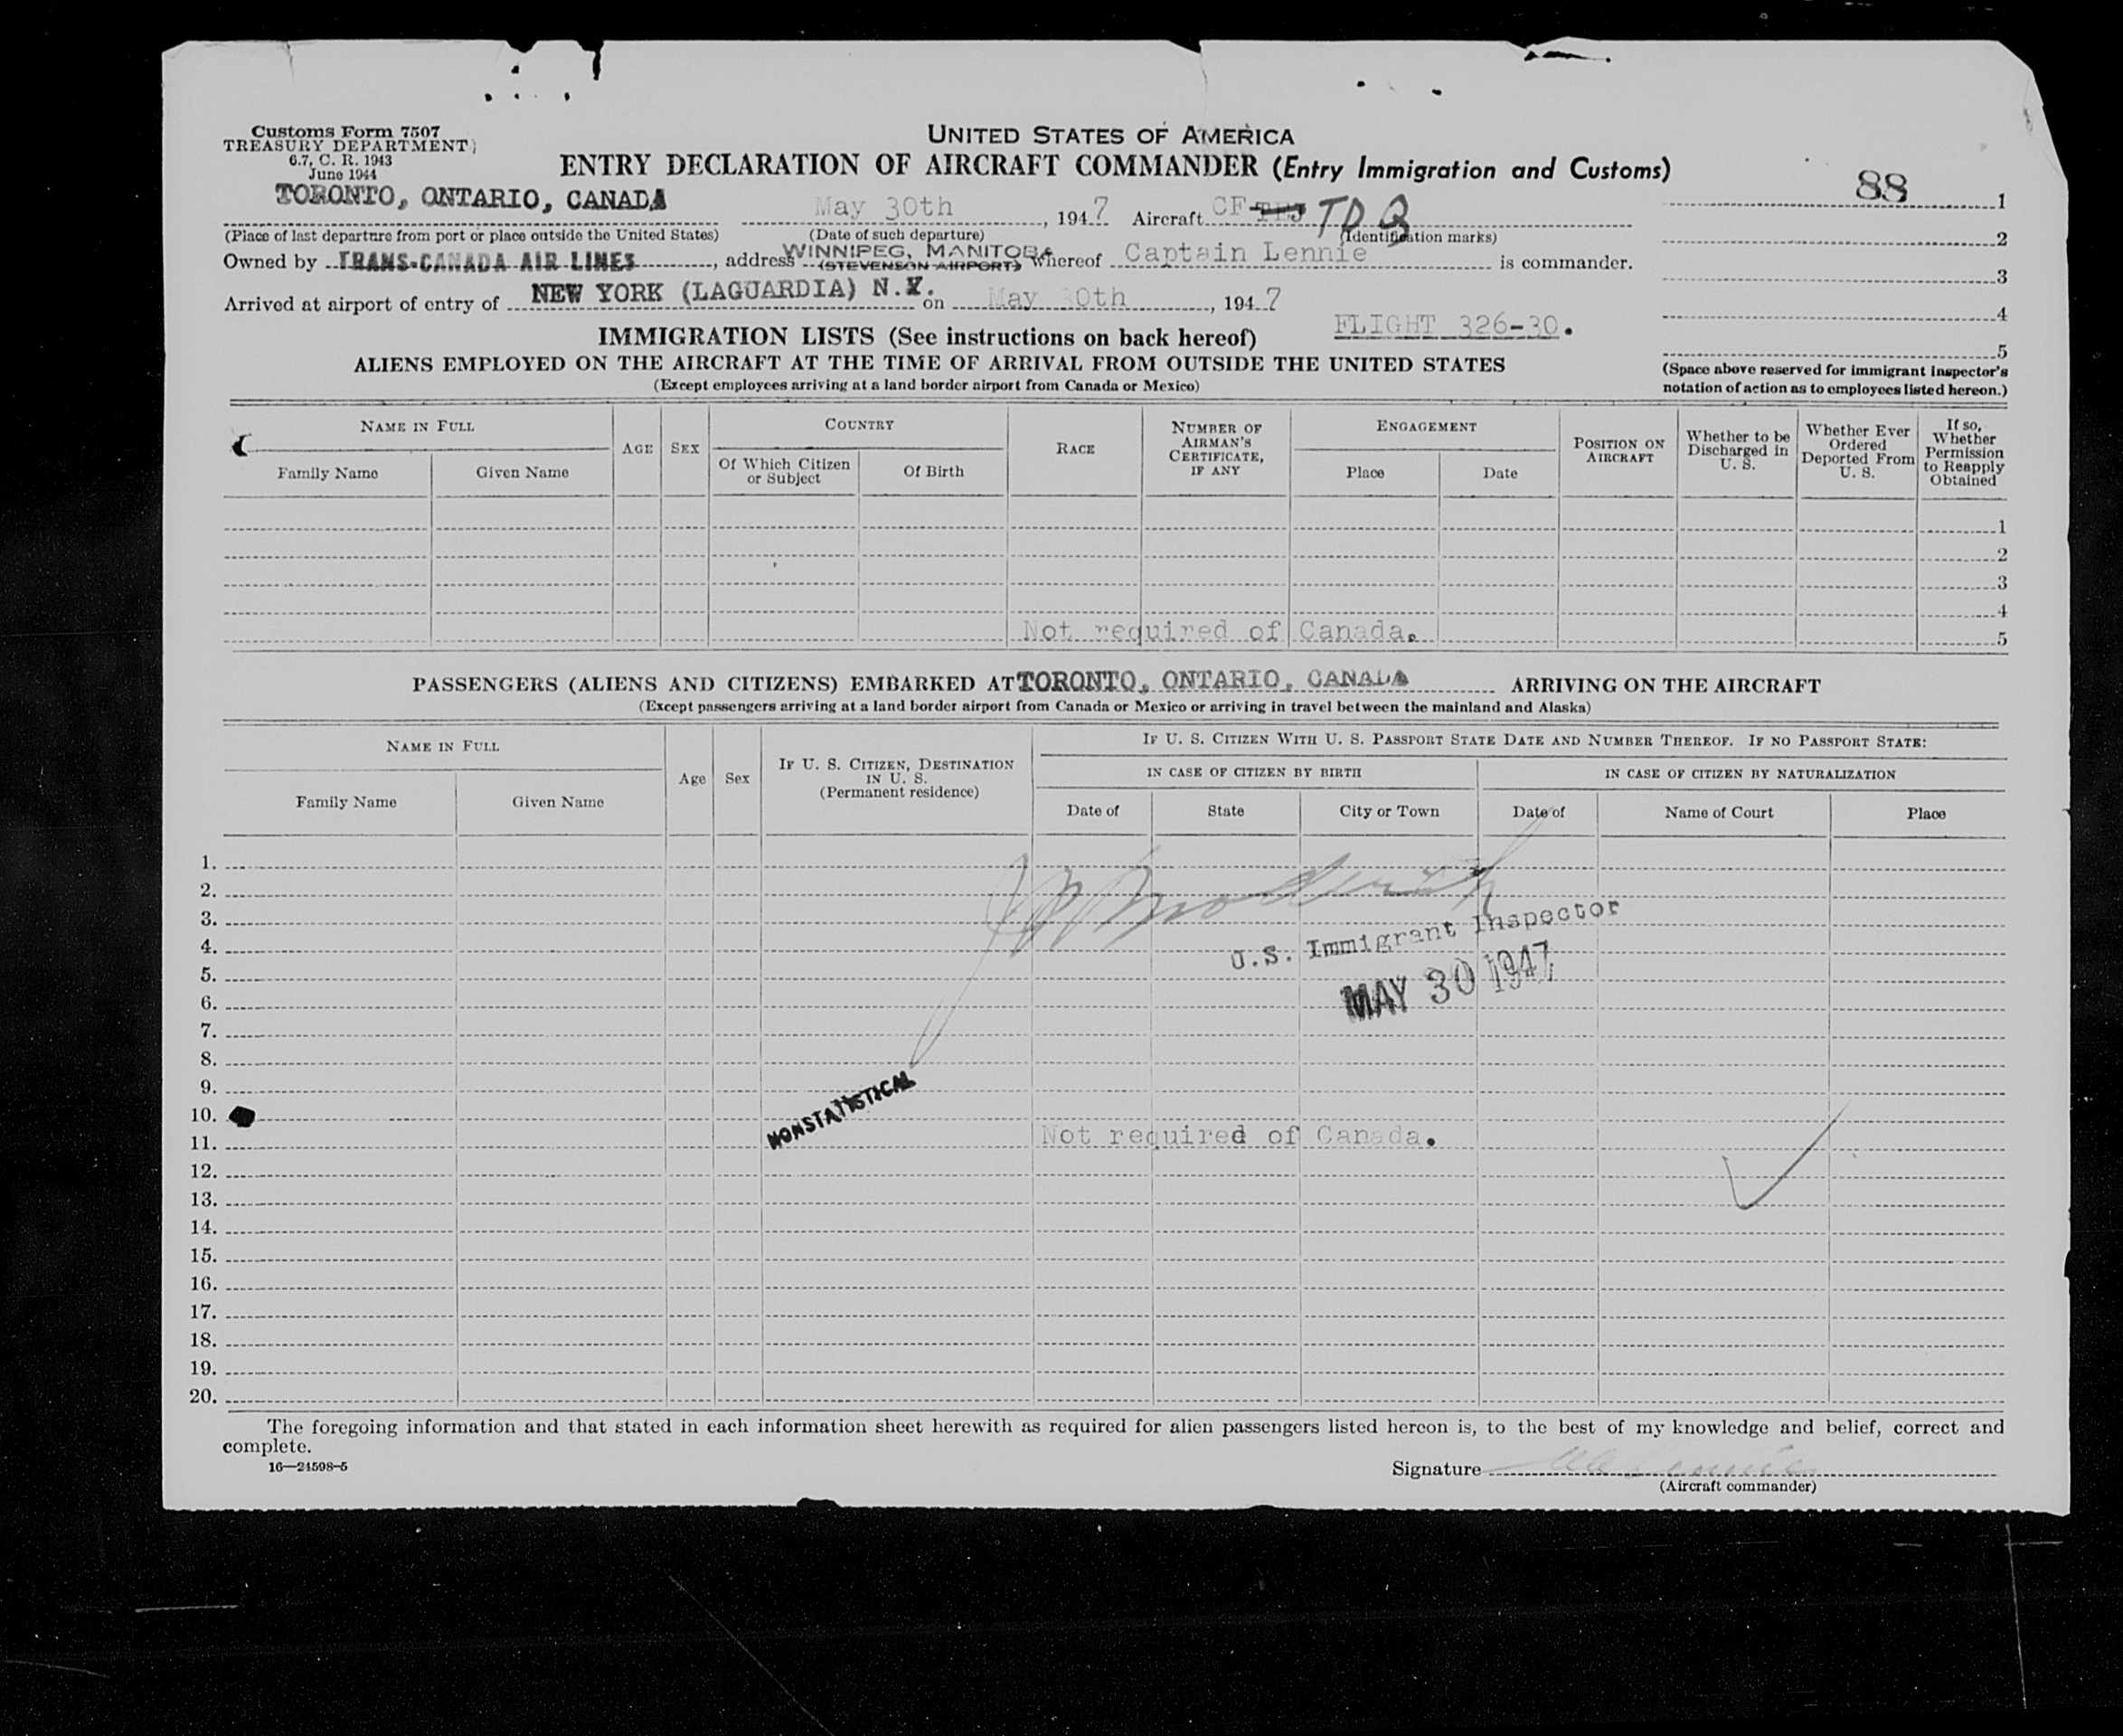 Customs Form 7507
TREASURY DEPARTMENT
6.7, C. R. 1943
June 1944
UNITED STATES OF AMERICA
ENTRY DECLARATION OF AIRCRAFT COMMANDER (Entry Immigration and Customs)
88 1
TORONTO, ONTARIO, CANADA May 30th, 1947 Aircraft CF TDB
(Place of last departure from port or place outside the United States) (Date of such departure) (Identification marks)
2
Owned by TRANS-CANADA AIR LINES, address WINNIPEG, MANITOBA (STEVENSON AIRPORT) whereof Captain Lennie is commander.
3
Arrived at airport of entry of NEW YORK (LAGUARDIA) N.Y. on May 30th, 1947
4
FLIGHT 326-30.
IMMIGRATION LISTS (See instructions on back hereof)
5
ALIENS EMPLOYED ON THE AIRCRAFT AT THE TIME OF ARRIVAL FROM OUTSIDE THE UNITED STATES
(Except employees arriving at a land border airport from Canada or Mexico)
(Space above reserved for immigrant inspector's
notation of action as to employees listed hereon.)
NAME IN FULL
Family Name
Given Name
AGE
SEX
COUNTRY
Of Which Citizen
or Subject
Of Birth
RACE
NUMBER OF
AIRMAN'S
CERTIFICATE,
IF ANY
ENGAGEMENT
Place
Date
POSITION ON
AIRCRAFT
Whether to be
Discharged in
U. S.
Whether Ever
Ordered
Deported From
U. S.
If so,
Whether
Permission
to Reapply
Obtained
1
2
3
4
Not required of Canada. 5
PASSENGERS (ALIENS AND CITIZENS) EMBARKED AT TORONTO, ONTARIO, CANADA ARRIVING ON THE AIRCRAFT
(Except passengers arriving at a land border airport from Canada or Mexico or arriving in travel between the mainland and Alaska)
NAME IN FULL
Family Name
Given Name
Age
Sex
IF U. S. CITIZEN, DESTINATION
IN U. S.
(Permanent residence)
IF U. S. CITIZEN WITH U. S. PASSPORT STATE DATE AND NUMBER THEREOF. IF NO PASSPORT STATE:
IN CASE OF CITIZEN BY BIRTH
Date of
State
City or Town
IN CASE OF CITIZEN BY NATURALIZATION
Date of
Name of Court
Place
1.
2.
3.
U.S. Immigrant Inspector
4.
5.
MAY 30 1947
6.
7.
8.
9.
NONSTATISTICAL
10.
11. Not required of Canada.
12.
13.
14.
15.
16.
17.
18.
19.
20.
The foregoing information and that stated in each information sheet herewith as required for alien passengers listed hereon is, to the best of my knowledge and belief, correct and
complete.
16—24598-5
Signature Lennie
(Aircraft commander)